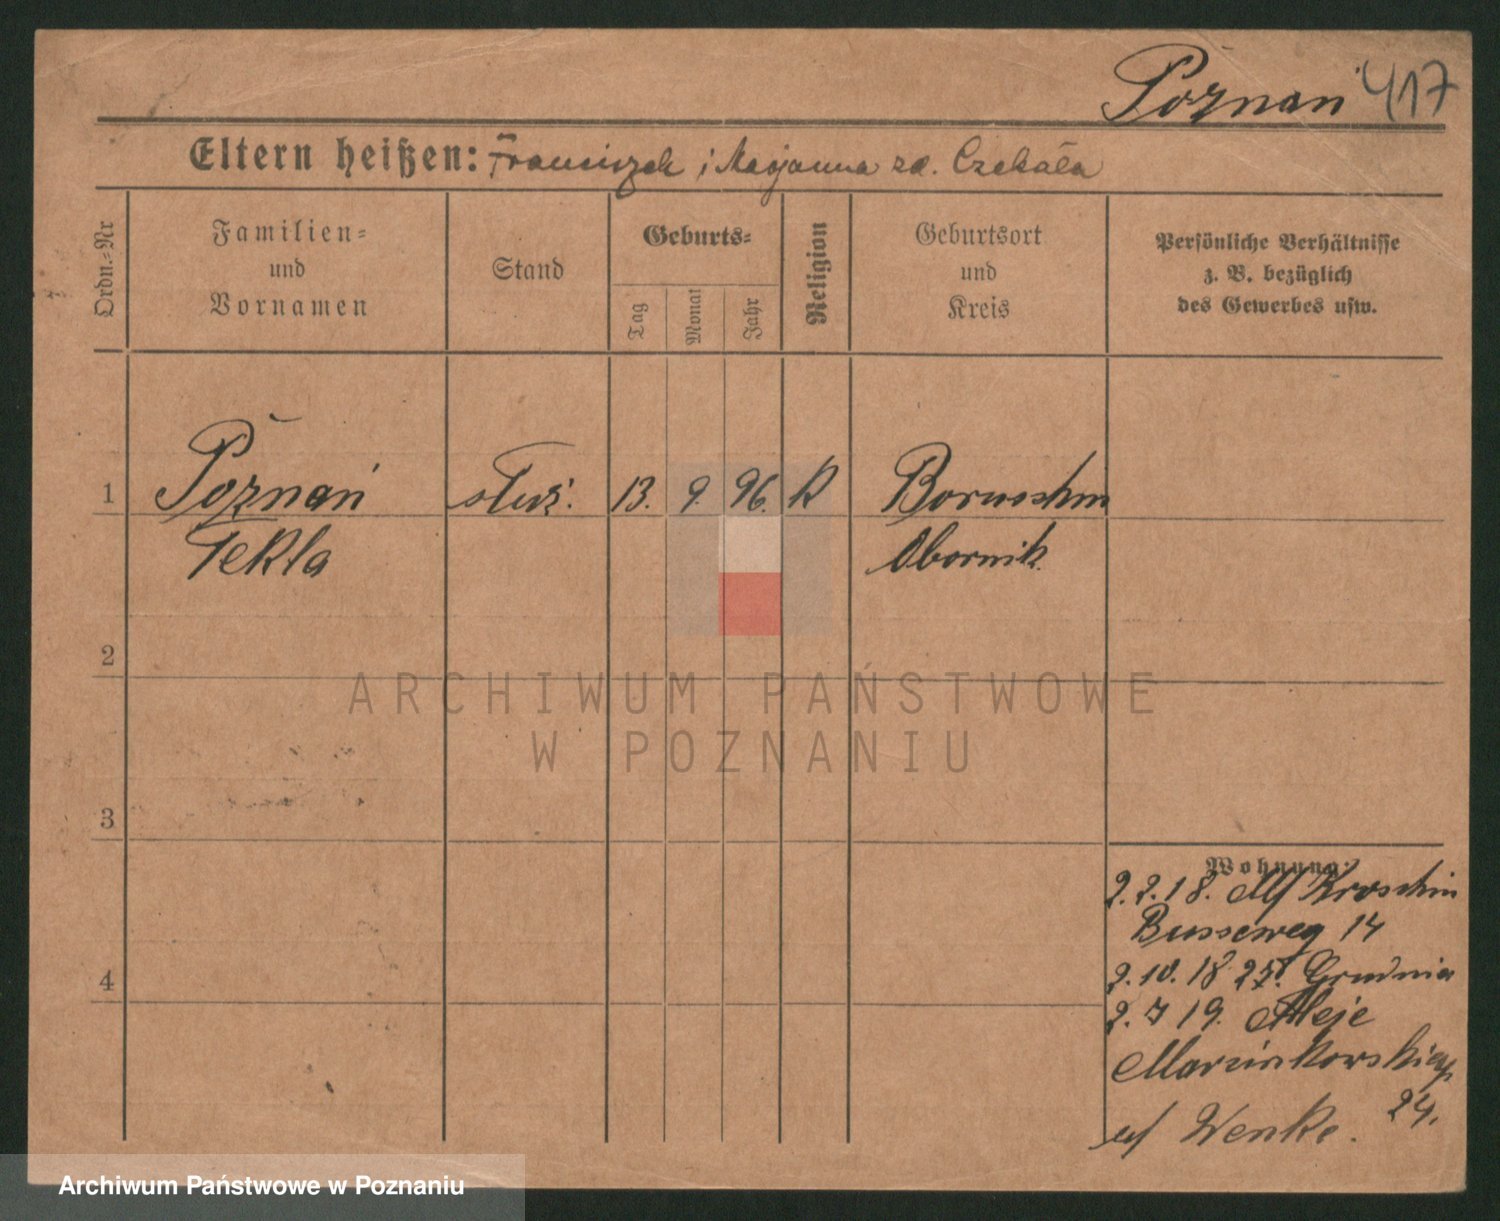 Poznan 417
Eltern heißen: Franciszek i Marjanna zd. Czekała
Ordn.-Nr
Familien-
und
Vornamen
Stand
Geburts-
Tag
Monat
Jahr
Religion
Geburtsort
und
Kreis
Persönliche Verhältnisse
z. B. bezüglich
des Gewerbes usw.
1 Poznań służ. 13. 9. 96. K Boruschin
Tekla Obornik
2
ARCHIWUM PAŃSTWOWE
W POZNANIU
3
Wohnung:
2.2.18. Kroschin
Busseweg 14
2.10.18 Grudnia
2.7 19. Aleje
Marcinkowskiego
24.
Wenke.
4
Archiwum Państwowe w Poznaniu